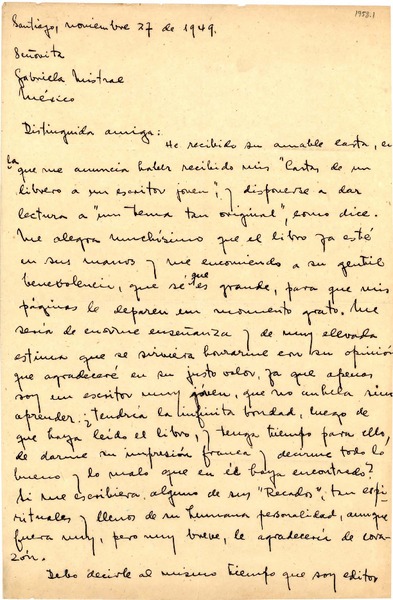 1953.1
Santiago, noviembre 27 de 1949.
Señorita
Gabriela Mistral
México
Distinguida amiga:
He recibido su amable carta, en
la que me anuncia haber recibido mis "Cartas de un
librero a un escritor joven", y disponerse a dar
lectura a "un tema tan original", como dice.
Me alegra muchísimo que el libro ya esté
en sus manos y me encomiendo a su gentil
benevolencia, que sé que es grande, para que mis
páginas le deparen un momento grato. Me
sería de enorme enseñanza y de muy elevada
estima que se sirviera honrarme con su opinión
que agradeceré en su justo valor, ya que apenas
soy un escritor muy jóven, que no anhela sino
aprender. ¿tendría la infinita bondad, luego de
que haya leído el libro, y tenga tiempo para ello,
de darme su impresión franca y decirme todo lo
bueno y lo malo que en él haya encontrado?
Si me escribiera alguno de sus "Recados", tan espi-
rituales y llenos de su humana personalidad, aunque
fuera muy, pero muy breve, le agradecería de cora-
zón.
Debo decirle al mismo tiempo que soy editor